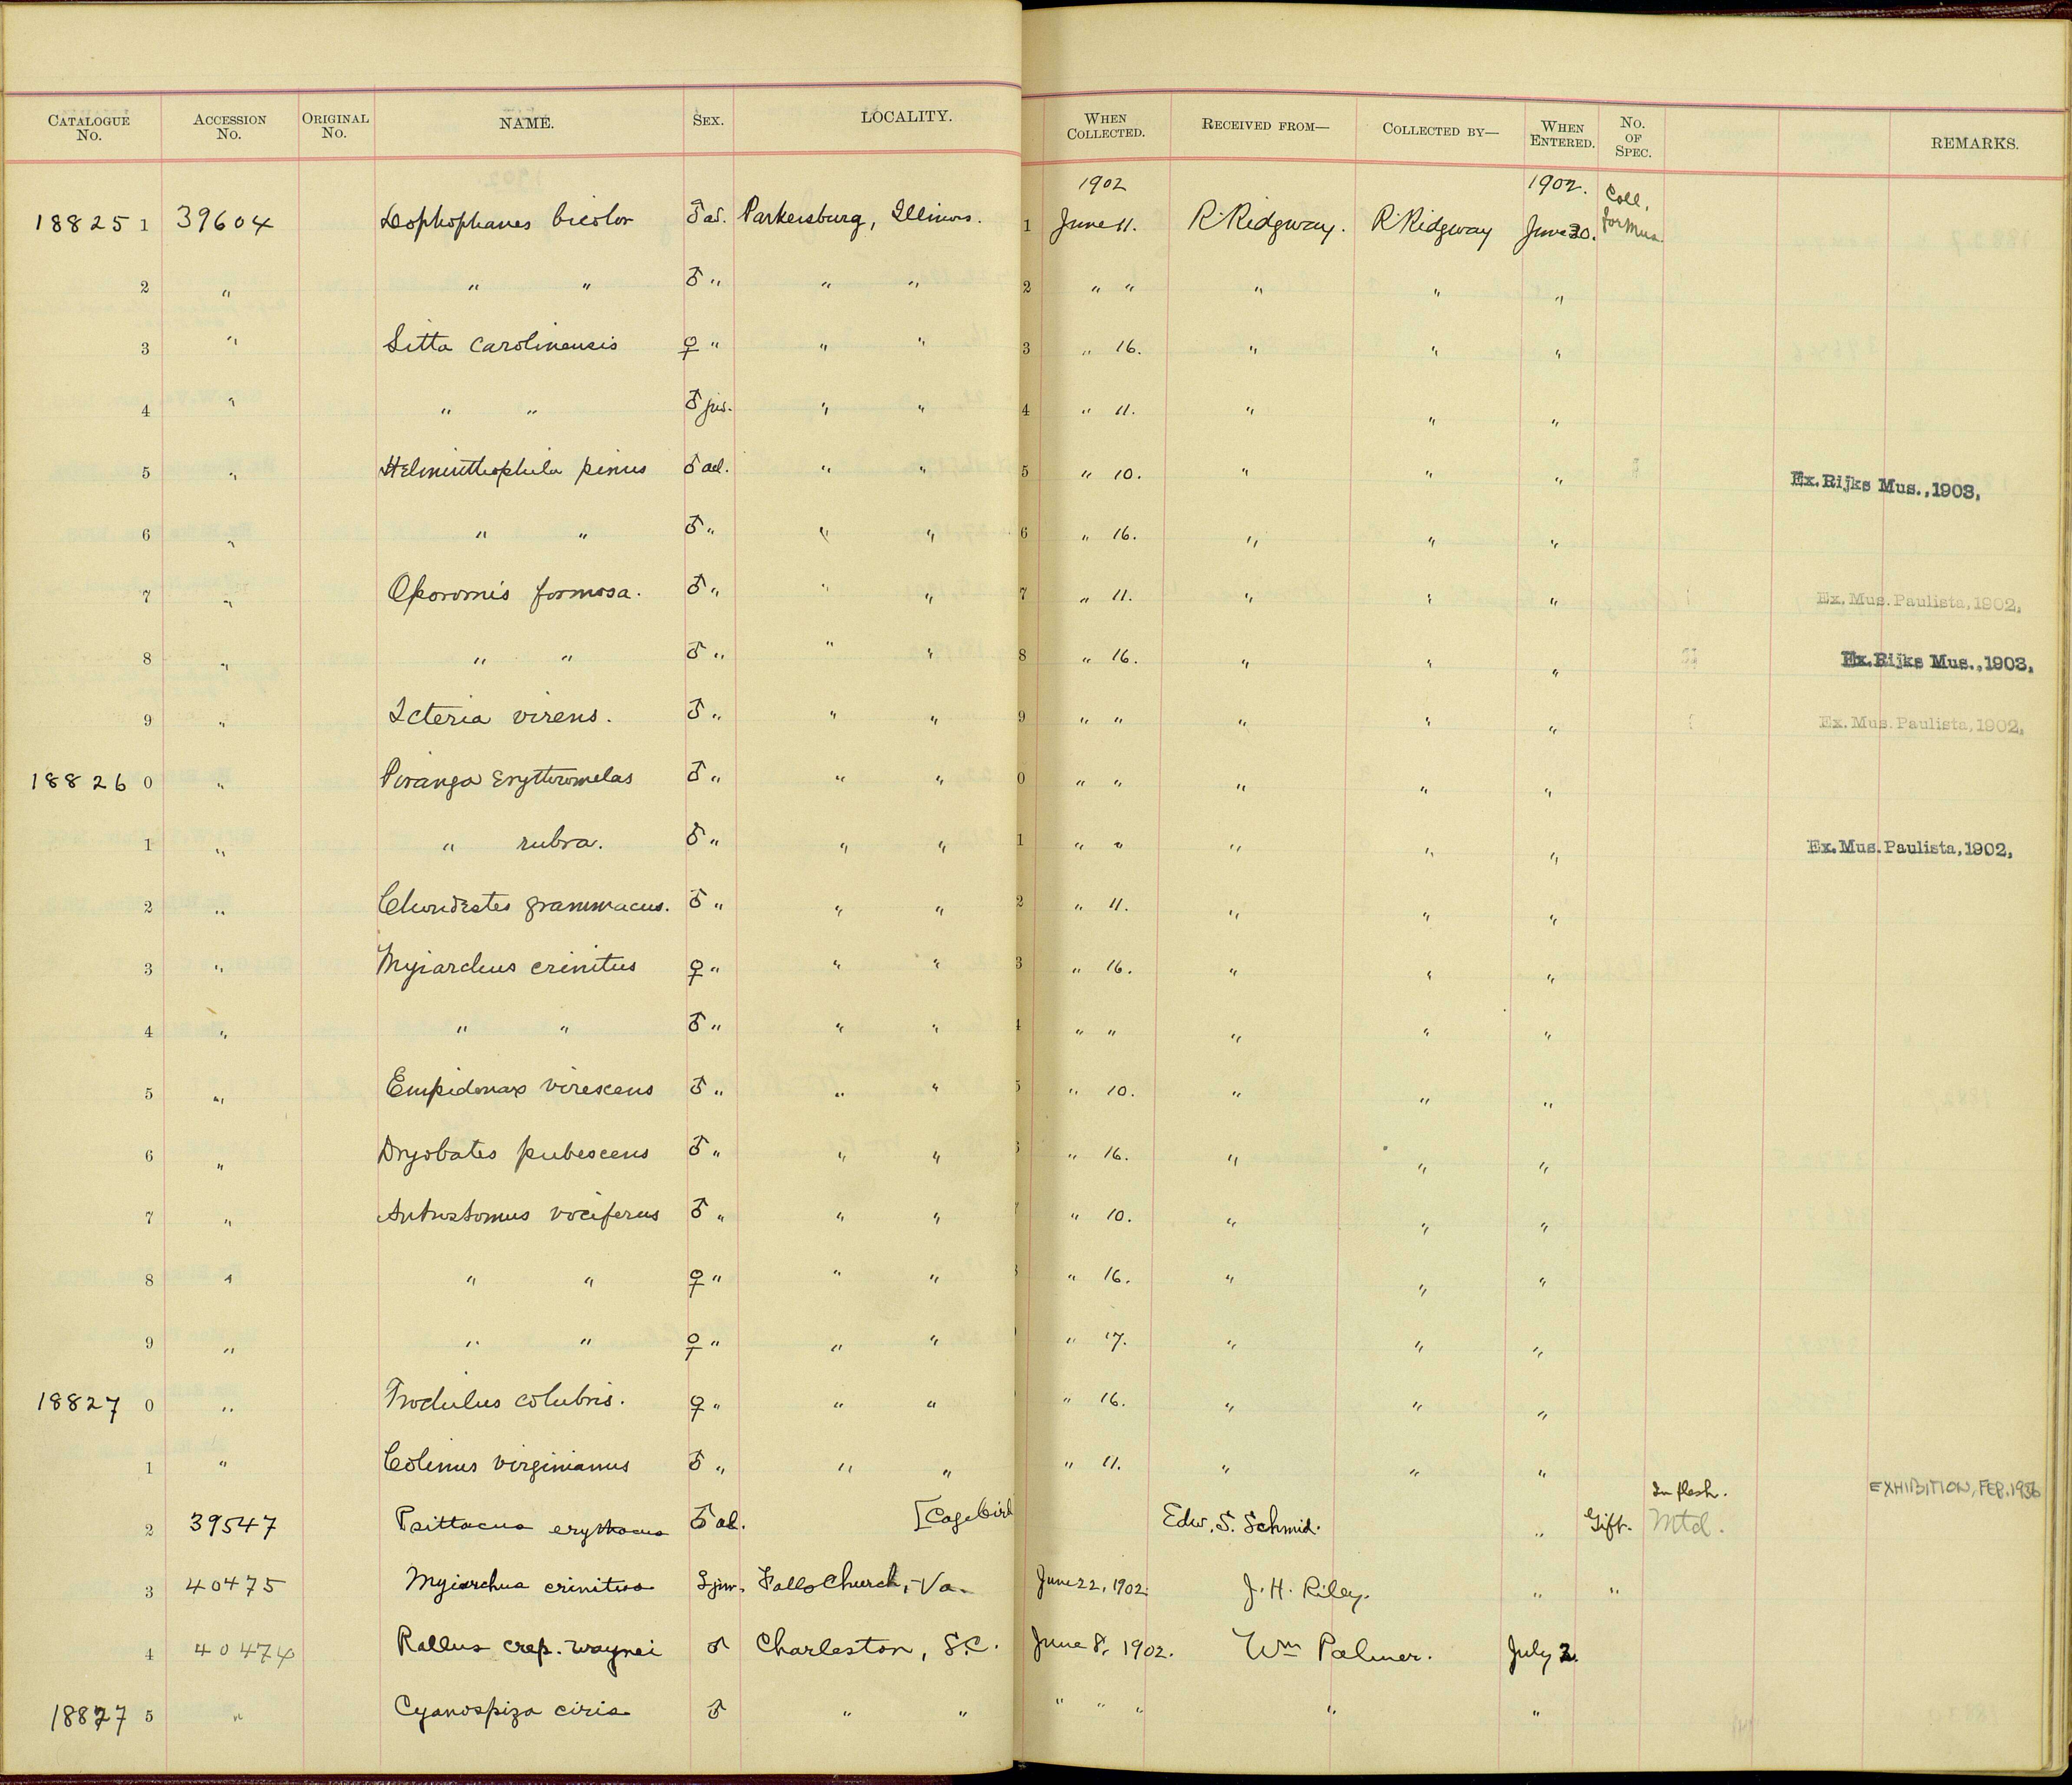 CATALOGUE No. ACCESSION No. ORIGINAL No. NAME. SEX. LOCALITY. WHEN COLLECTED. RECEIVED FROM— COLLECTED BY— WHEN ENTERED. No. OF SPEC. REMARKS.
1902 1902. Coll. for Mus.
18825 1 39604 Lophophanes bicolor ♂ ad. Parkersburg, Illinois. 1 June 11. R. Ridgway. R. Ridgway June 30.
2 " " " ♂ " " " 2 " " " " "
3 " Sitta carolinensis ♀ " " " 3 " 16. " " "
4 " " " ♂ juv. " " 4 " 11. " " "
5 " Helminthophila pinus ♂ ad. " " 5 " 10. " " " Ex. Rijks Mus., 1903,
6 " " " ♂ " " " 6 " 16. " " "
7 " Oporornis formosa. ♂ " " " 7 " 11. " " " Ex. Mus. Paulista, 1902,
8 " " " ♂ " " " 8 " 16. " " " Ex. Rijks Mus., 1903,
9 " Icteria virens. ♂ " " " 9 " " " " " Ex. Mus. Paulista, 1902,
18826 0 " Piranga erythromelas ♂ " " " 0 " " " " "
1 " " rubra. ♂ " " " 1 " " " " " Ex. Mus. Paulista, 1902,
2 " Chondestes grammacus. ♂ " " " 2 " 11. " " "
3 " Myiarchus crinitus ♀ " " " 3 " 16. " " "
4 " " " ♂ " " " 4 " " " " "
5 " Empidonax virescens ♂ " " " 5 " 10. " " "
6 " Dryobates pubescens ♂ " " " " 16. " " "
7 " Antrostomus vociferus ♂ " " " " 10. " " "
8 " " " ♀ " " " " 16. " " "
9 " " " ♀ " " " " 17. " " "
18827 0 " Trochilus colubris. ♀ " " " " 16. " " "
1 " Colinus virginianus ♂ " " " " 11. " " "
2 39547 Psittacus erythacus ♂ ad. [Cage bird Edw. S. Schmid. " Gift. In flesh. Mtd. EXHIBITION, FEB. 1956
3 40475 Myiarchus crinitus juv. Falls Church, Va. June 22, 1902. J. H. Riley. " "
4 40474 Rallus crep. waynei ♂ Charleston, S.C. June 8, 1902. Wm Palmer. July 2.
18827 5 " Cyanospiza ciris ♂ " " " " " " "